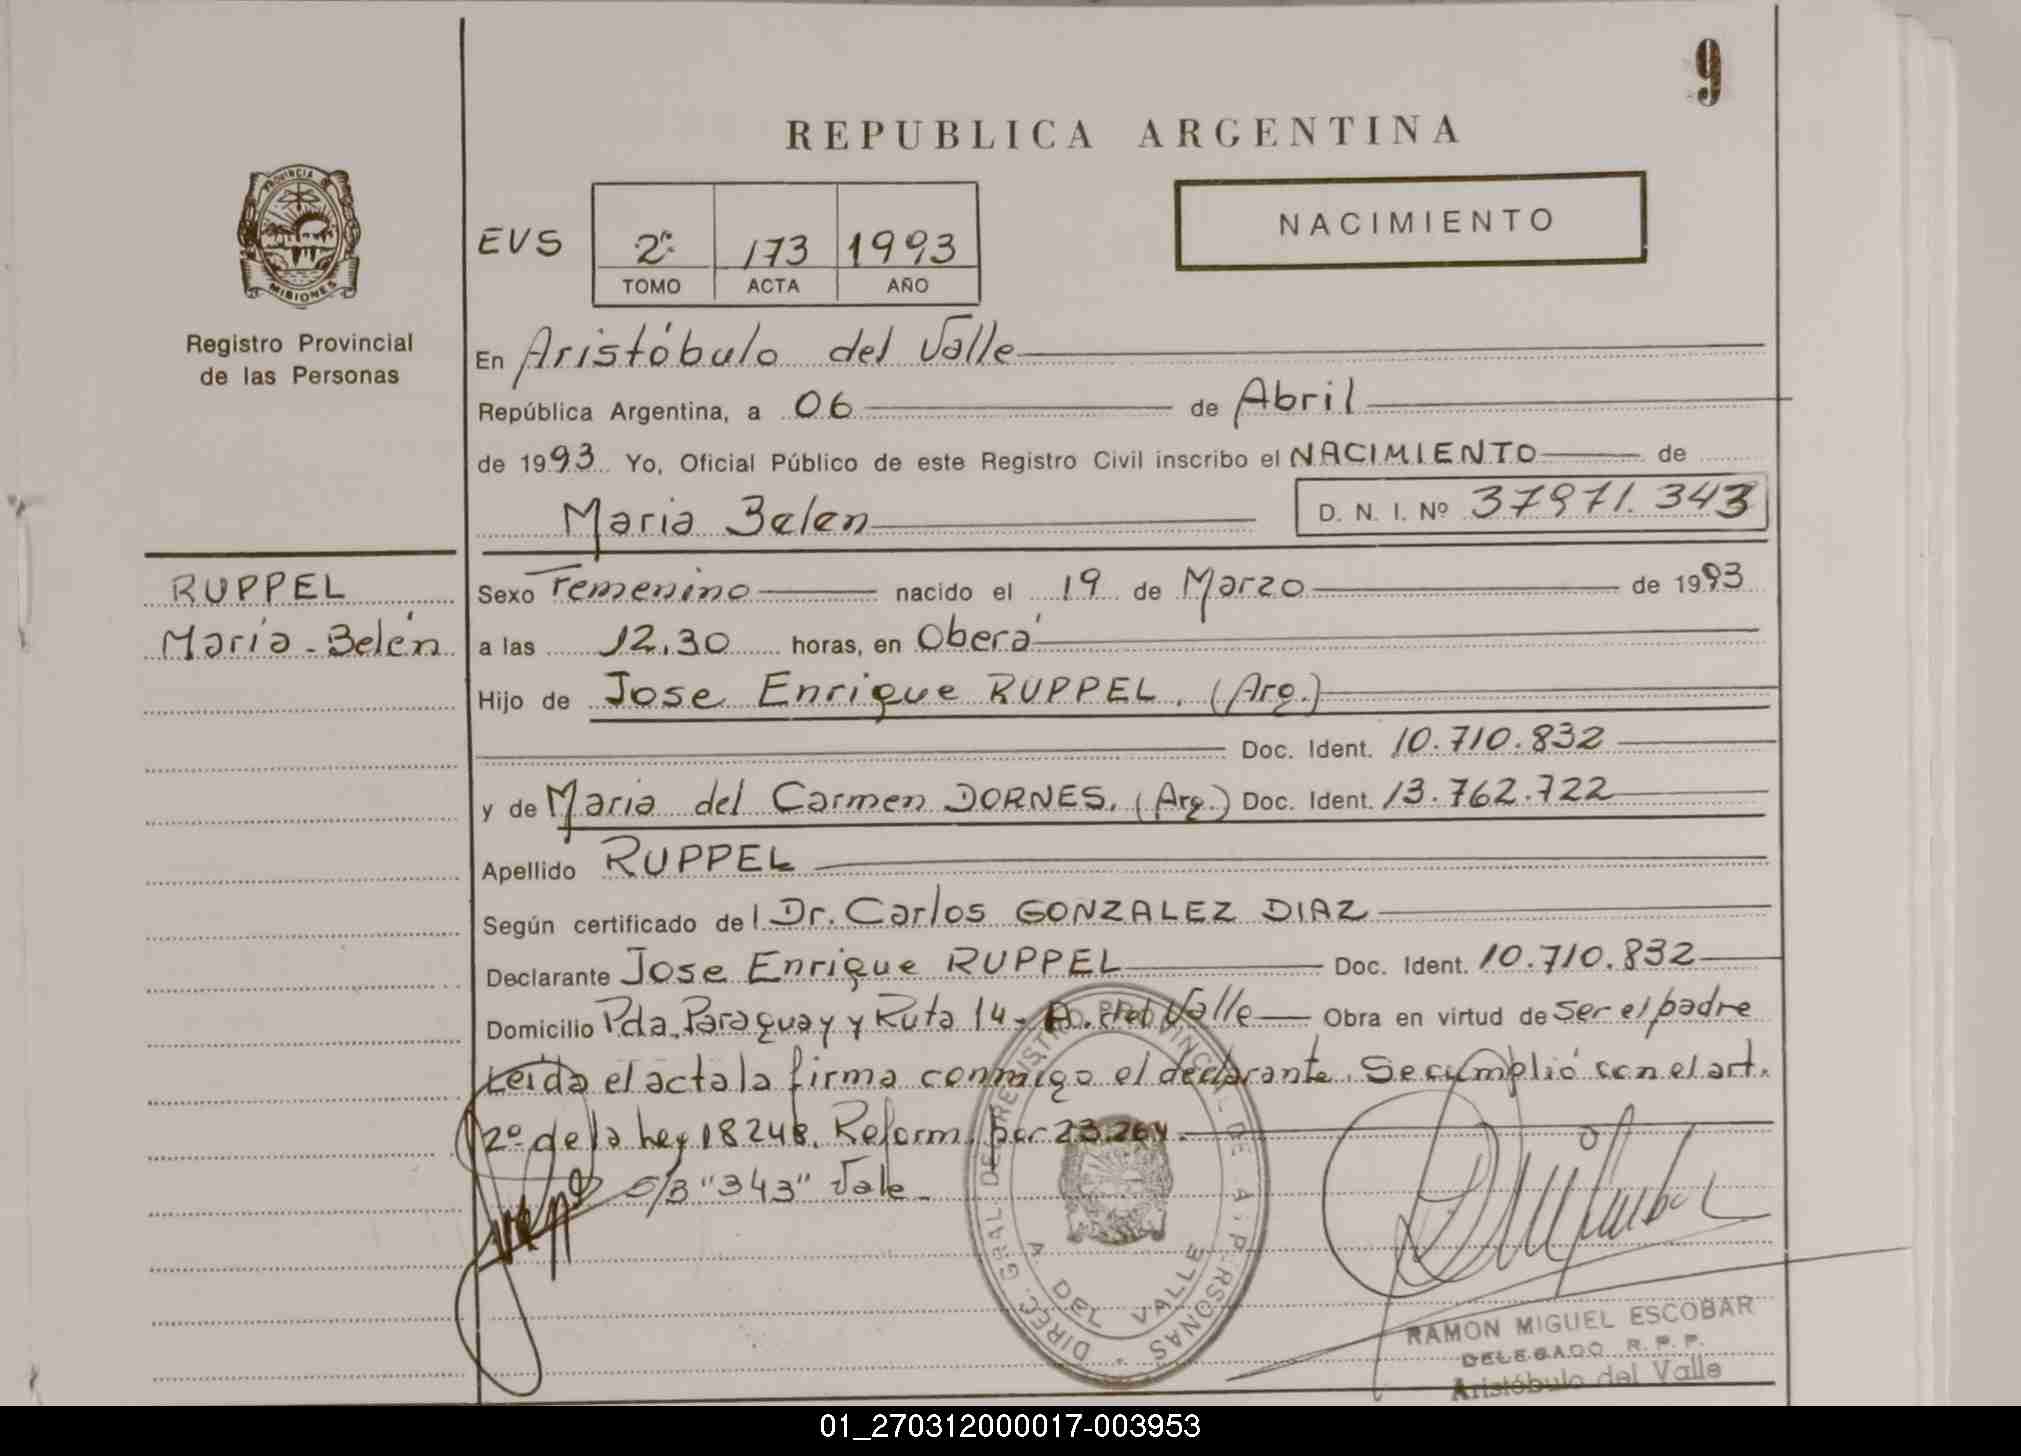 9
REPUBLICA ARGENTINA
PROVINCIA DE
MISIONES
Registro Provincial
de las Personas
EVS
2º 173 1993
TOMO ACTA AÑO
NACIMIENTO
En Aristóbulo del Valle
República Argentina, a 06 de Abril
de 1993 Yo, Oficial Público de este Registro Civil inscribo el NACIMIENTO de
Maria Belen D. N. I. Nº 37971.343
RUPPEL
Maria - Belén
Sexo Femenino nacido el 19 de Marzo de 1993
a las 12.30 horas, en Oberá
Hijo de Jose Enrique RUPPEL. (Arg.)
Doc. Ident. 10.710.832
y de Maria del Carmen DORNES. (Arg.) Doc. Ident. 13.762.722
Apellido RUPPEL
Según certificado del Dr. Carlos GONZALEZ DIAZ
Declarante Jose Enrique RUPPEL Doc. Ident. 10.710.832
Domicilio Pda. Paraguay y Ruta 14 - A. del Valle Obra en virtud de ser el padre
Leida el acta la firma conmigo el declarante. Se cumplió con el art.
2º de la ley 18248. Reform. por 23.264.
S/B "343" Vale.
DIREC. GRAL. DE REGISTRO PROVINCIAL DE LAS PERSONAS
A. DEL VALLE
RAMON MIGUEL ESCOBAR
DELEGADO R. P. P.
Aristóbulo del Valle
01_270312000017-003953